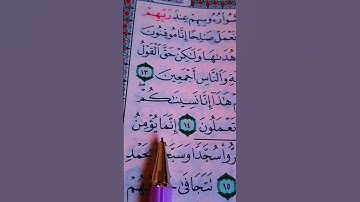 كِسُوا۟ رُءُوسِهِمْ عِندَ رَبِّهِمْ
نَعْمَلْ صَٰلِحًا إِنَّا مُوقِنُونَ
هُدَىٰهَا وَلَٰكِنْ حَقَّ الْقَوْلُ
ةِ وَالنَّاسِ أَجْمَعِينَ ١٣
مْ هَٰذَا إِنَّا نَسِينَٰكُمْ
تَعْمَلُونَ ١٤ إِنَّمَا يُؤْمِنُ
رُّوا۟ سُجَّدًا وَسَبَّ حَمْدِ
١٥ تَتَجَافَىٰ